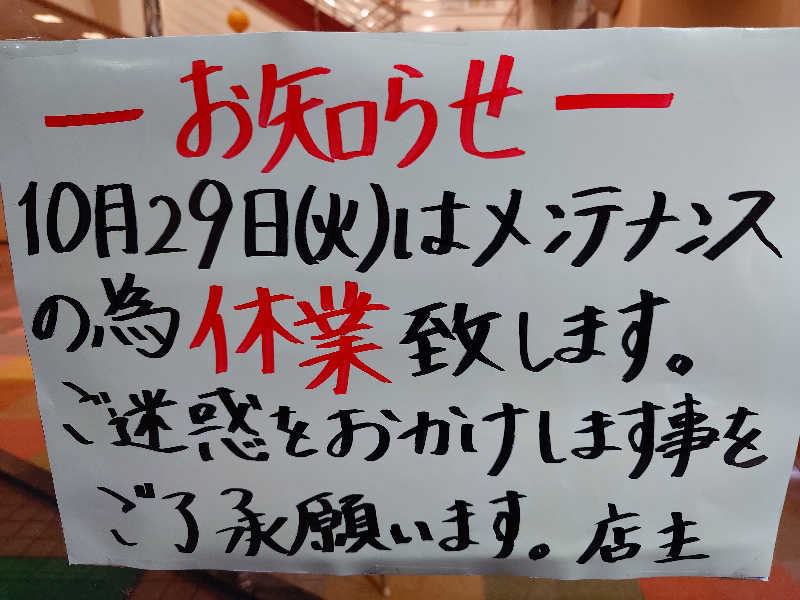 ーお知らせー
10月29日(火)はメンテナンス
の為休業致します。
ご迷惑をおかけします事を
ご了承願います。店主